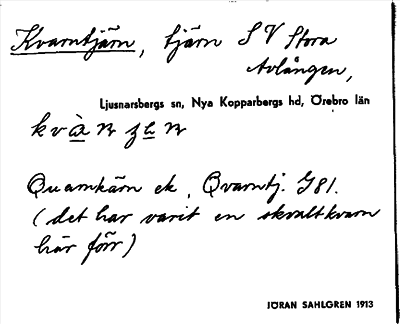 Kvarntjärn, tjärn SV Stora
Avlången,
Ljusnarsbergs sn, Nya Kopparbergs hd, Örebro län
Quarnkärn ek, Qvarntj. G81.
(det har varit en skvaltkvarn
här förr)
JÖRAN SAHLGREN 1913